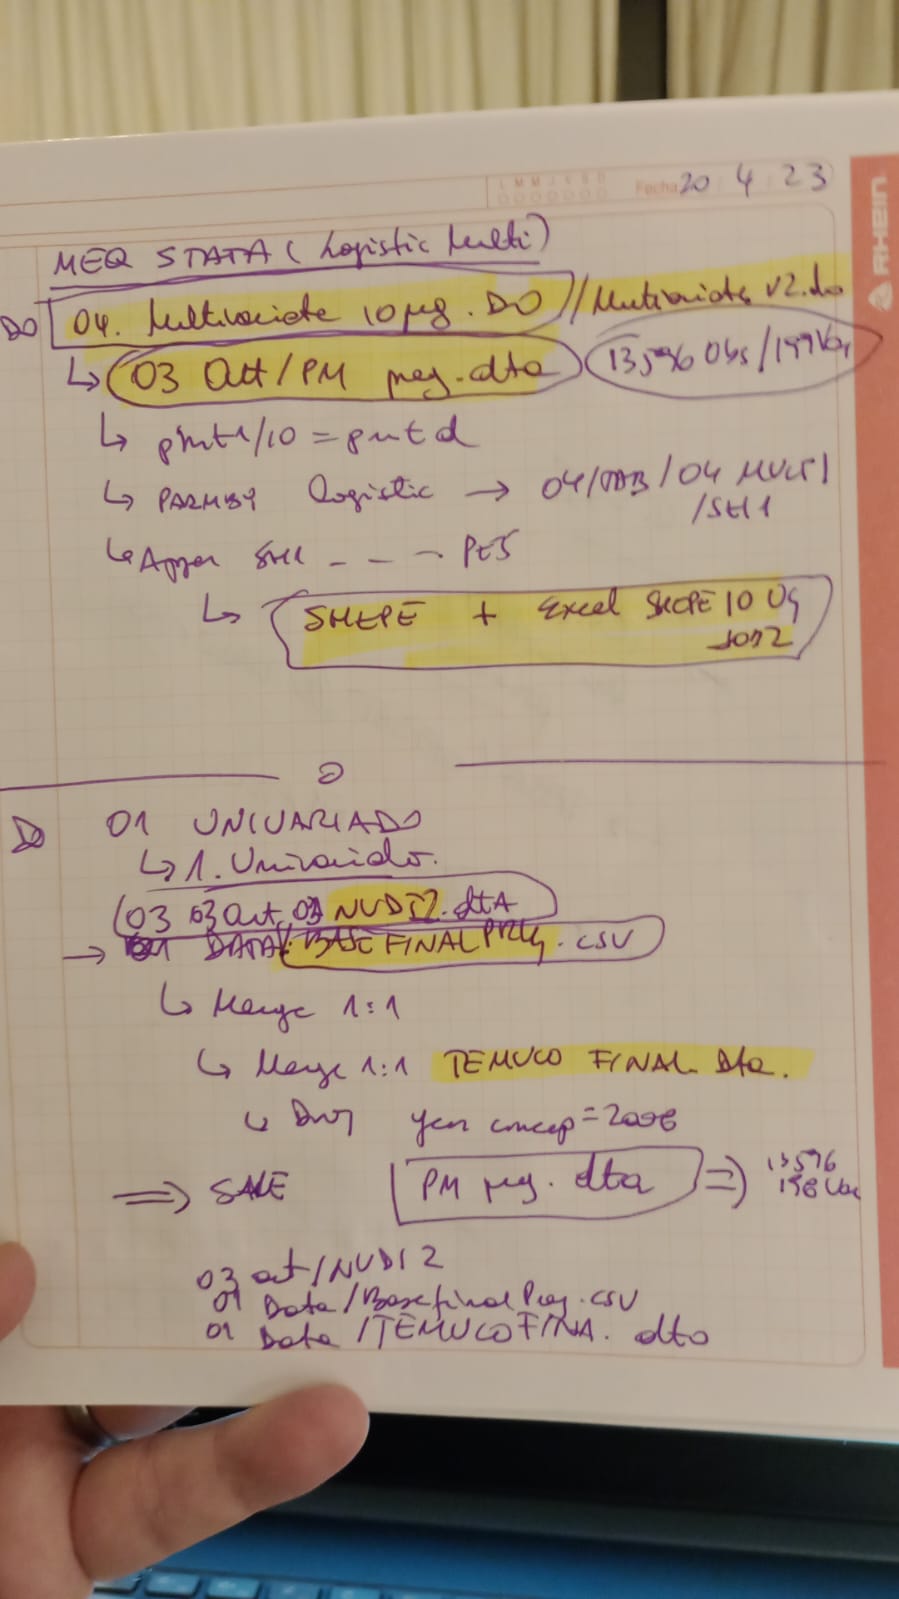 L M M J V S D
Fecha 20 4 23
RHEIN
MEQ STATA (Logistic Multi)
DO 04. Multivariate 10 µg. DO // Multivariate V2.do
↳ 03 Out/PM preg.dta 13,596 Obs/199 Var
↳ /10 =
↳ PARMBY logistic → 04/TAB/04 MULTI
/SH1
↳ SH1 - - - PE5
↳ SHEPE + Excel 10 Ug
DO 01 UNIVARIADO
↳ 1. Univariado.
03 03 Out 03 NUDI2.dtA
→ 01 DATA/BASE FINAL PREG.CSV
↳ Merge 1:1
↳ Merge 1:1 TEMUCO FINAL. Dta.
↳ Drop year concep = 2008
⇒ SAVE PM preg. dta ⇒ 13596
198 Var
03 out/NUDI 2
01 Data/Basefinal Preg.CSV
01 Data/TEMUCO FINA. dta